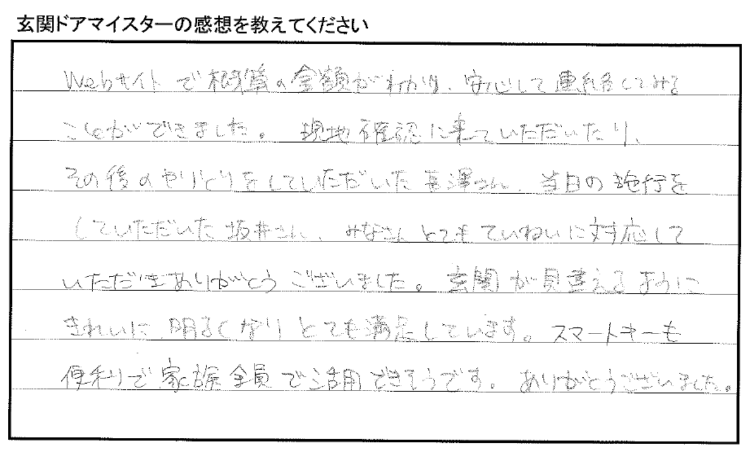 玄関ドアマイスターの感想を教えてください
Webサイトで概算の金額がわかり、安心して連絡してみる
ことができました。現地確認に来ていただいたり、
その後のやりとりをしていただいた 澤さん、当日の施行を
していただいた坂井さん、みなさんとてもていねいに対応して
いただきありがとうございました。玄関が見違えるように
きれいに明るくなりとても満足しています。スマートキーも
便利で家族全員で活用できそうです。ありがとうございました。